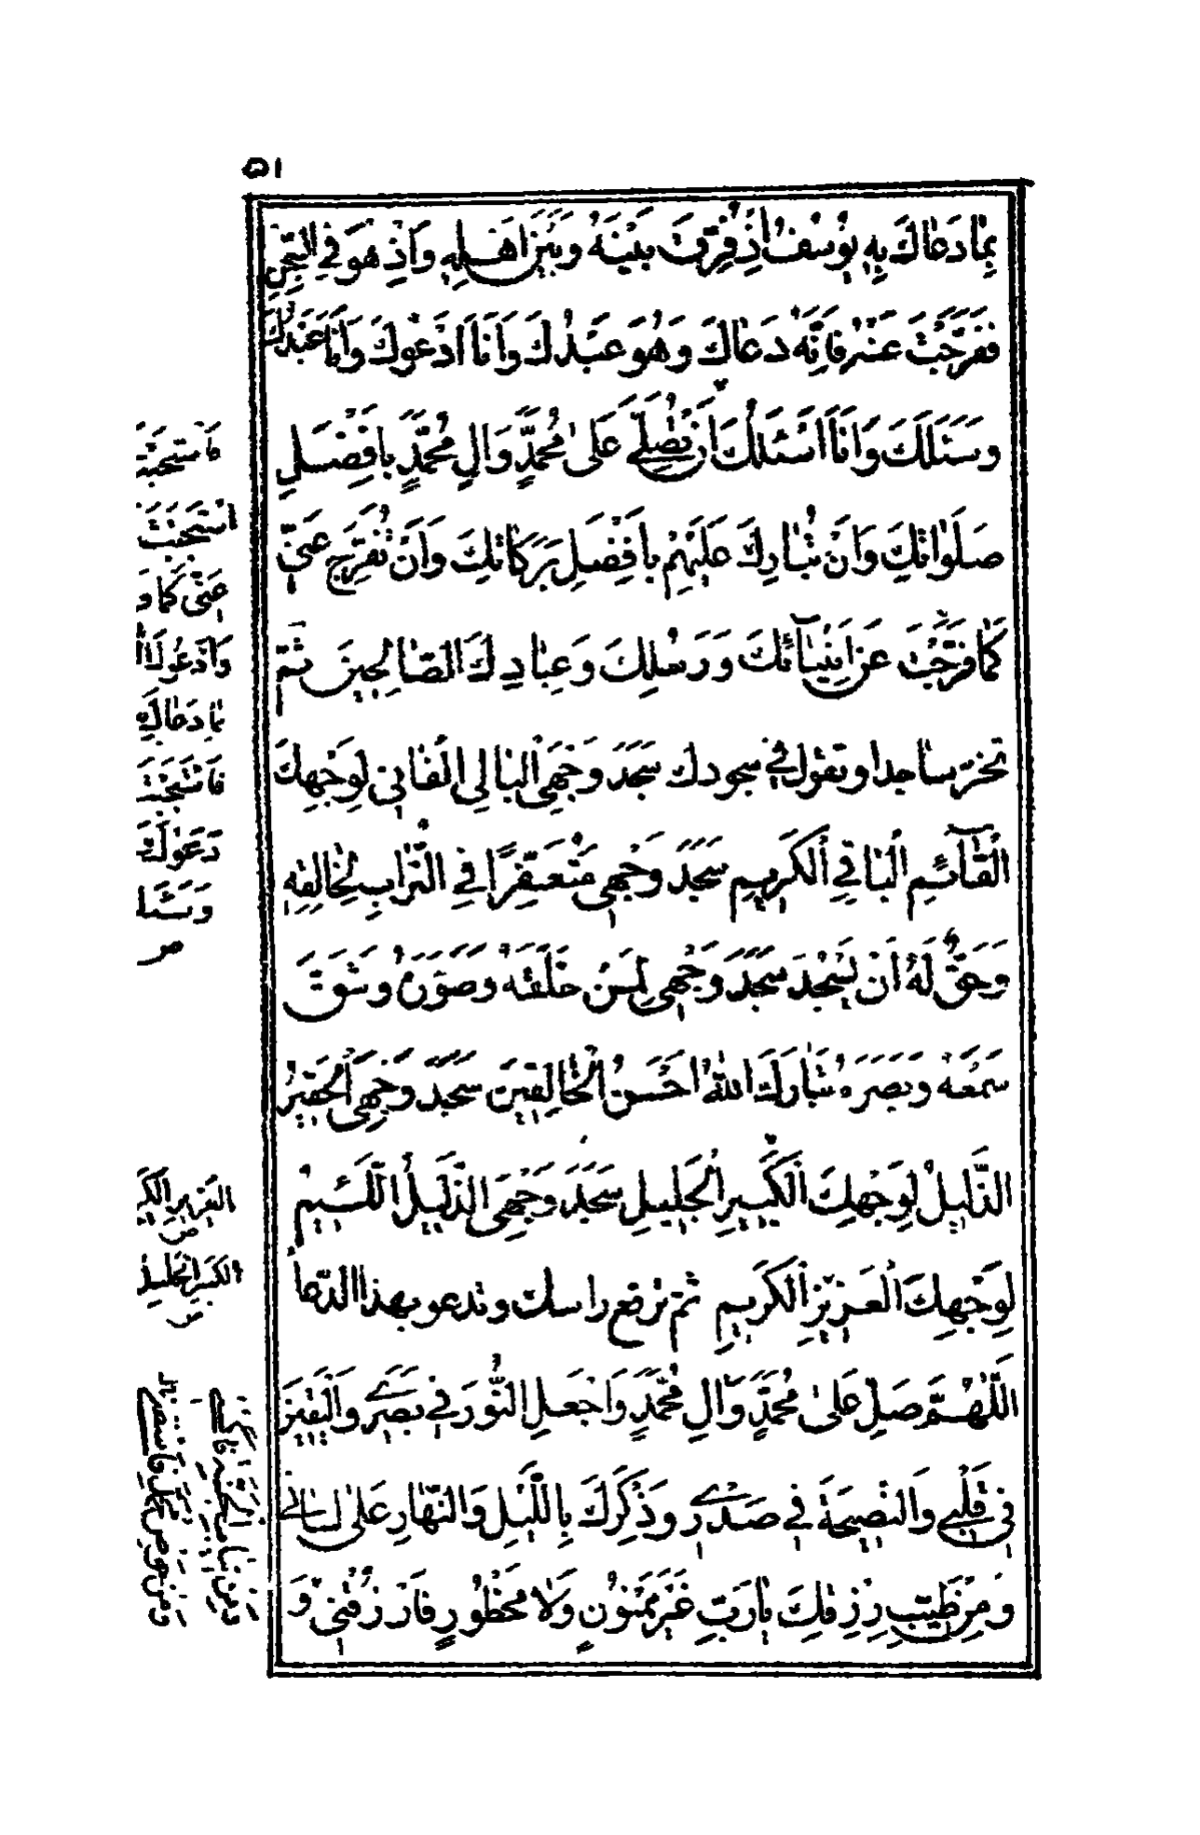 ٥١
بِمَا دَعَاكَ بِهِ يُوسُفُ اِذْ فَرَّقْتَ بَيْنَهُ وَبَيْنَ اَهْلِهِ وَاِذْ هُوَ فِي السِّجْنِ
فَفَرَّجْتَ عَنْهُ فَاِنَّهُ دَعَاكَ وَهُوَ عَبْدُكَ وَاَنَا اَدْعُوكَ وَاَنَا عَبْدُكَ
وَسَئَلَكَ وَاَنَا اَسْئَلُكَ اَنْ تُصَلِّيَ عَلَى مُحَمَّدٍ وَالِ مُحَمَّدٍ بِاَفْضَلِ
صَلَوَاتِكَ وَاَنْ تُبَارِكَ عَلَيْهِمْ بِاَفْضَلِ بَرَكَاتِكَ وَاَنْ تُفَرِّجَ عَنِّي
كَمَا فَرَّجْتَ عَنْ اَنْبِيَآئِكَ وَرُسُلِكَ وَعِبَادِكَ الصَّالِحِينَ ثُمَّ
تخرّ ساجدا وتقول في سجودك سَجَدَ وَجْهِيَ الْبَالِي الْفَانِي لِوَجْهِكَ
الْقَآئِمِ الْبَاقِي الْكَرِيمِ سَجَدَ وَجْهِي مُتَعَفِّرًا فِي التُّرَابِ لِخَالِقِهِ
وَحَقٌّ لَهُ اَنْ يَسْجُدَ سَجَدَ وَجْهِي لِمَنْ خَلَقَهُ وَصَوَّرَهُ وَشَقَّ
سَمْعَهُ وَبَصَرَهُ تَبَارَكَ اللّٰهُ اَحْسَنُ الْخَالِقِينَ سَجَدَ وَجْهِيَ الْحَقِيرُ
الذَّلِيلُ لِوَجْهِكَ الْكَبِيرِ الْجَلِيلِ سَجَدَ وَجْهِيَ الذَّلِيلُ اللَّئِيمُ
لِوَجْهِكَ الْعَزِيزِ الْكَرِيمِ ثمّ ترفع راسك وتدعو بهذا الدّعا
اَللّٰهُمَّ صَلِّ عَلَى مُحَمَّدٍ وَّالِ مُحَمَّدٍ وَاجْعَلِ النُّورَ فِي بَصَرِي وَالْيَقِينَ
فِي قَلْبِي وَالنَّصِيحَةَ فِي صَدْرِي وَذِكْرَكَ بِاللَّيْلِ وَالنَّهَارِ عَلَى لِسَانِي
وَمِنْ طَيِّبِ رِزْقِكَ يَا رَبِّ غَيْرَ مَمْنُونٍ وَلَا مَحْظُورٍ فَارْزُقْنِي وَ
فاستجبت
استجبت
عَنِّي كَمَا
وَاَدْعُوكَ
بما دعاك
فاستجبت
دَعَوْكَ
وَسَئَلَ
ص
العزيز الكر
ص
الكبير الجليل
ص